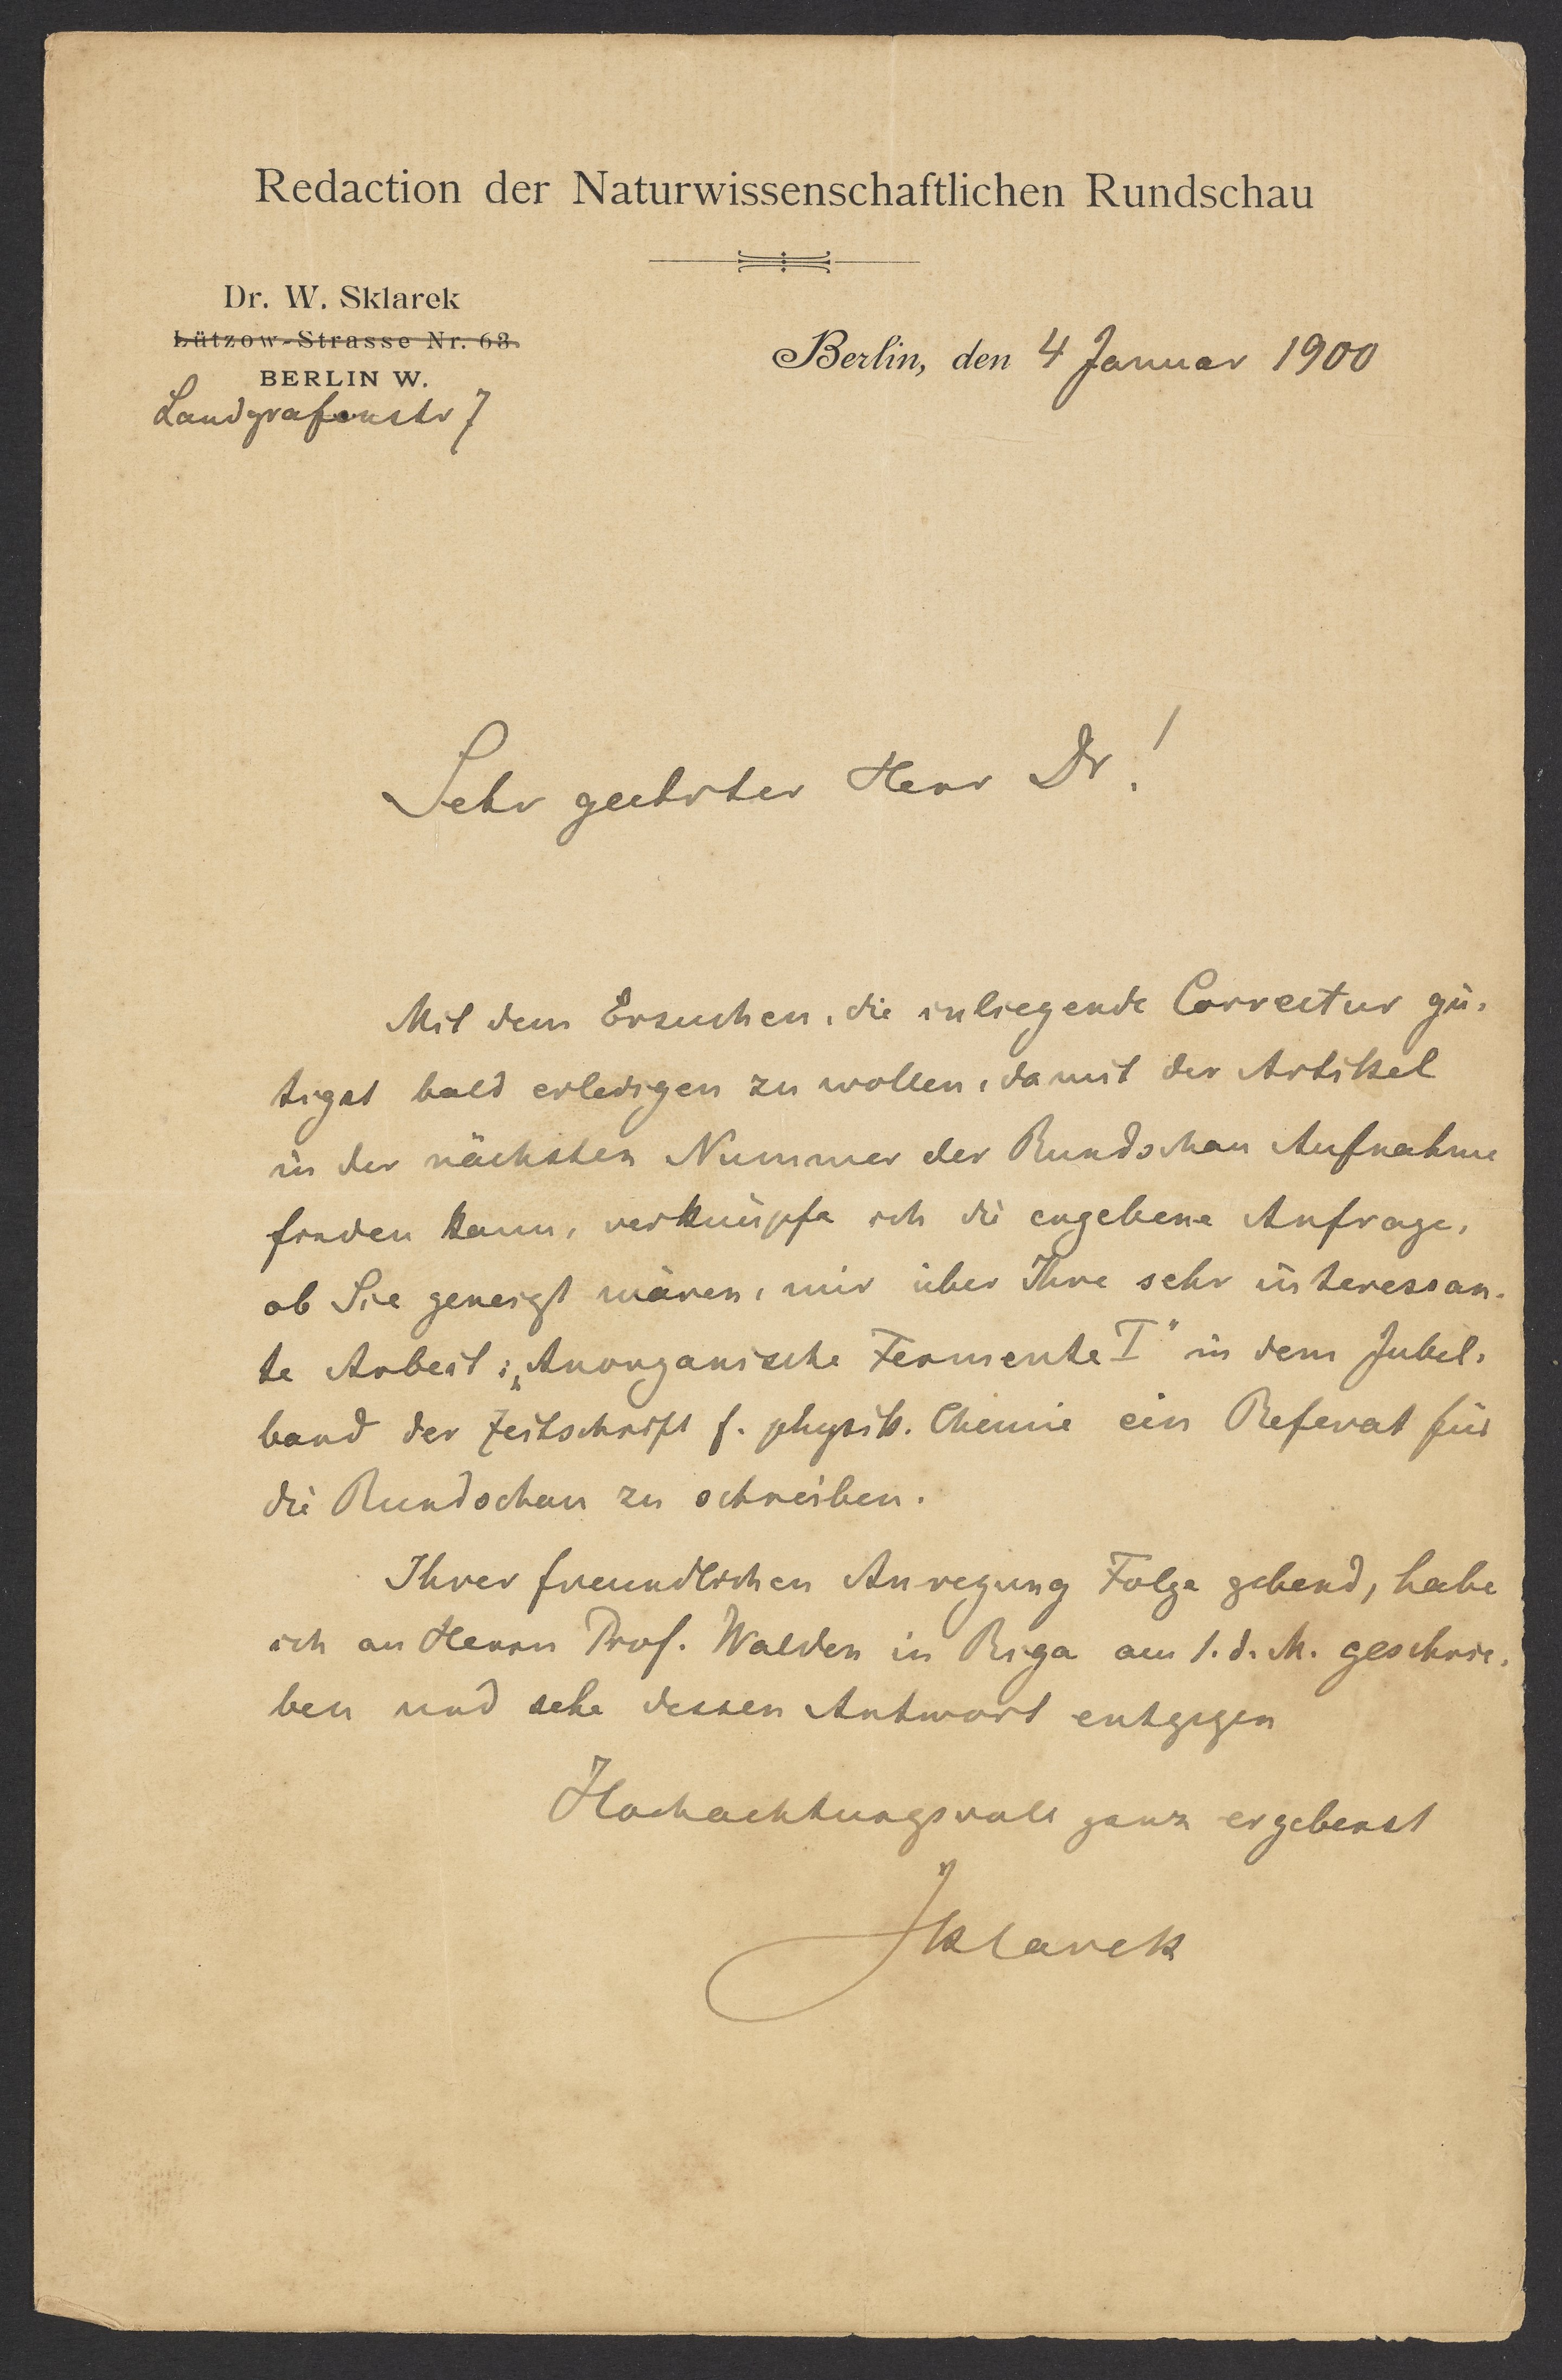 Redaction der Naturwissenschaftlichen Rundschau
Dr. W. Sklarek
Lützow-Strasse Nr. 63.
BERLIN W.
Landgrafenstr 7
Berlin, den 4 Januar 1900
Sehr geehrter Herr Dr!
Mit dem Ersuchen, die inliegende Correctur gü-
tigst bald erledigen zu wollen, damit der Artikel
in der nächsten Nummer der Rundschau Aufnahme
finden kann, verknüpfe ich die ergebene Anfrage,
ob Sie geneigt wären, mir über Ihre sehr interessan-
te Arbeit: „Anorganische Fermente I" in dem Jubel-
band der Zeitschrift f. physik. Chemie ein Referat für
die Rundschau zu schreiben.
Ihrer freundlichen Anregung Folge gebend, habe
ich an Herrn Prof. Walden in Riga am 1. d. M. geschrie-
ben und sehe dessen Antwort entgegen
Hochachtungsvoll ganz ergebenst
Sklarek